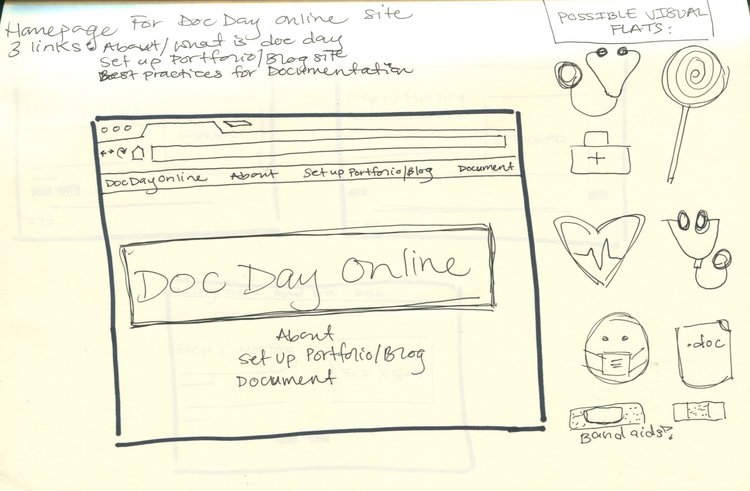 Homepage For Doc Day online site
3 links: About/what is doc day
Set up Portfolio/Blog site
Best practices for Documentation
POSSIBLE VISUAL
FLATS:
DocDayOnline About Set up Portfolio/Blog Document
DOC DAY Online
About
Set up Portfolio/Blog
Document
.doc
Band aids?